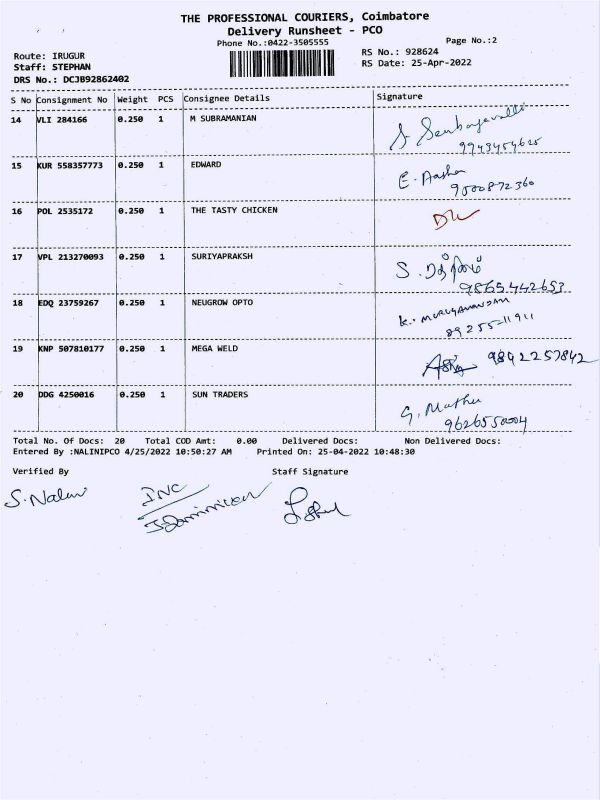 THE PROFESSIONAL COURIERS, Coimbatore
Delivery Runsheet - PCO
Phone No.:0422-3505555 Page No.:2
Route: IRUGUR RS No.: 928624
Staff: STEPHAN RS Date: 25-Apr-2022
DRS No.: DCJB92862402
S No Consignment No Weight PCS Consignee Details Signature
14 VLI 284166 0.250 1 M SUBRAMANIAN
15 KUR 558357773 0.250 1 EDWARD E. Aasha
9500872360
16 POL 2535172 0.250 1 THE TASTY CHICKEN
17 VPL 213270093 0.250 1 SURIYAPRAKSH S.
9865442653
18 EDQ 23759267 0.250 1 NEUGROW OPTO K. MURUGANANDAM
89255-11911
19 KNP 507810177 0.250 1 MEGA WELD 9842257842
20 DDG 4250016 0.250 1 SUN TRADERS G. Mathu
9626550004
Total No. Of Docs: 20 Total COD Amt: 0.00 Delivered Docs: Non Delivered Docs:
Entered By :NALINIPCO 4/25/2022 10:50:27 AM Printed On: 25-04-2022 10:48:30
Verified By Staff Signature
S. Nalini INC